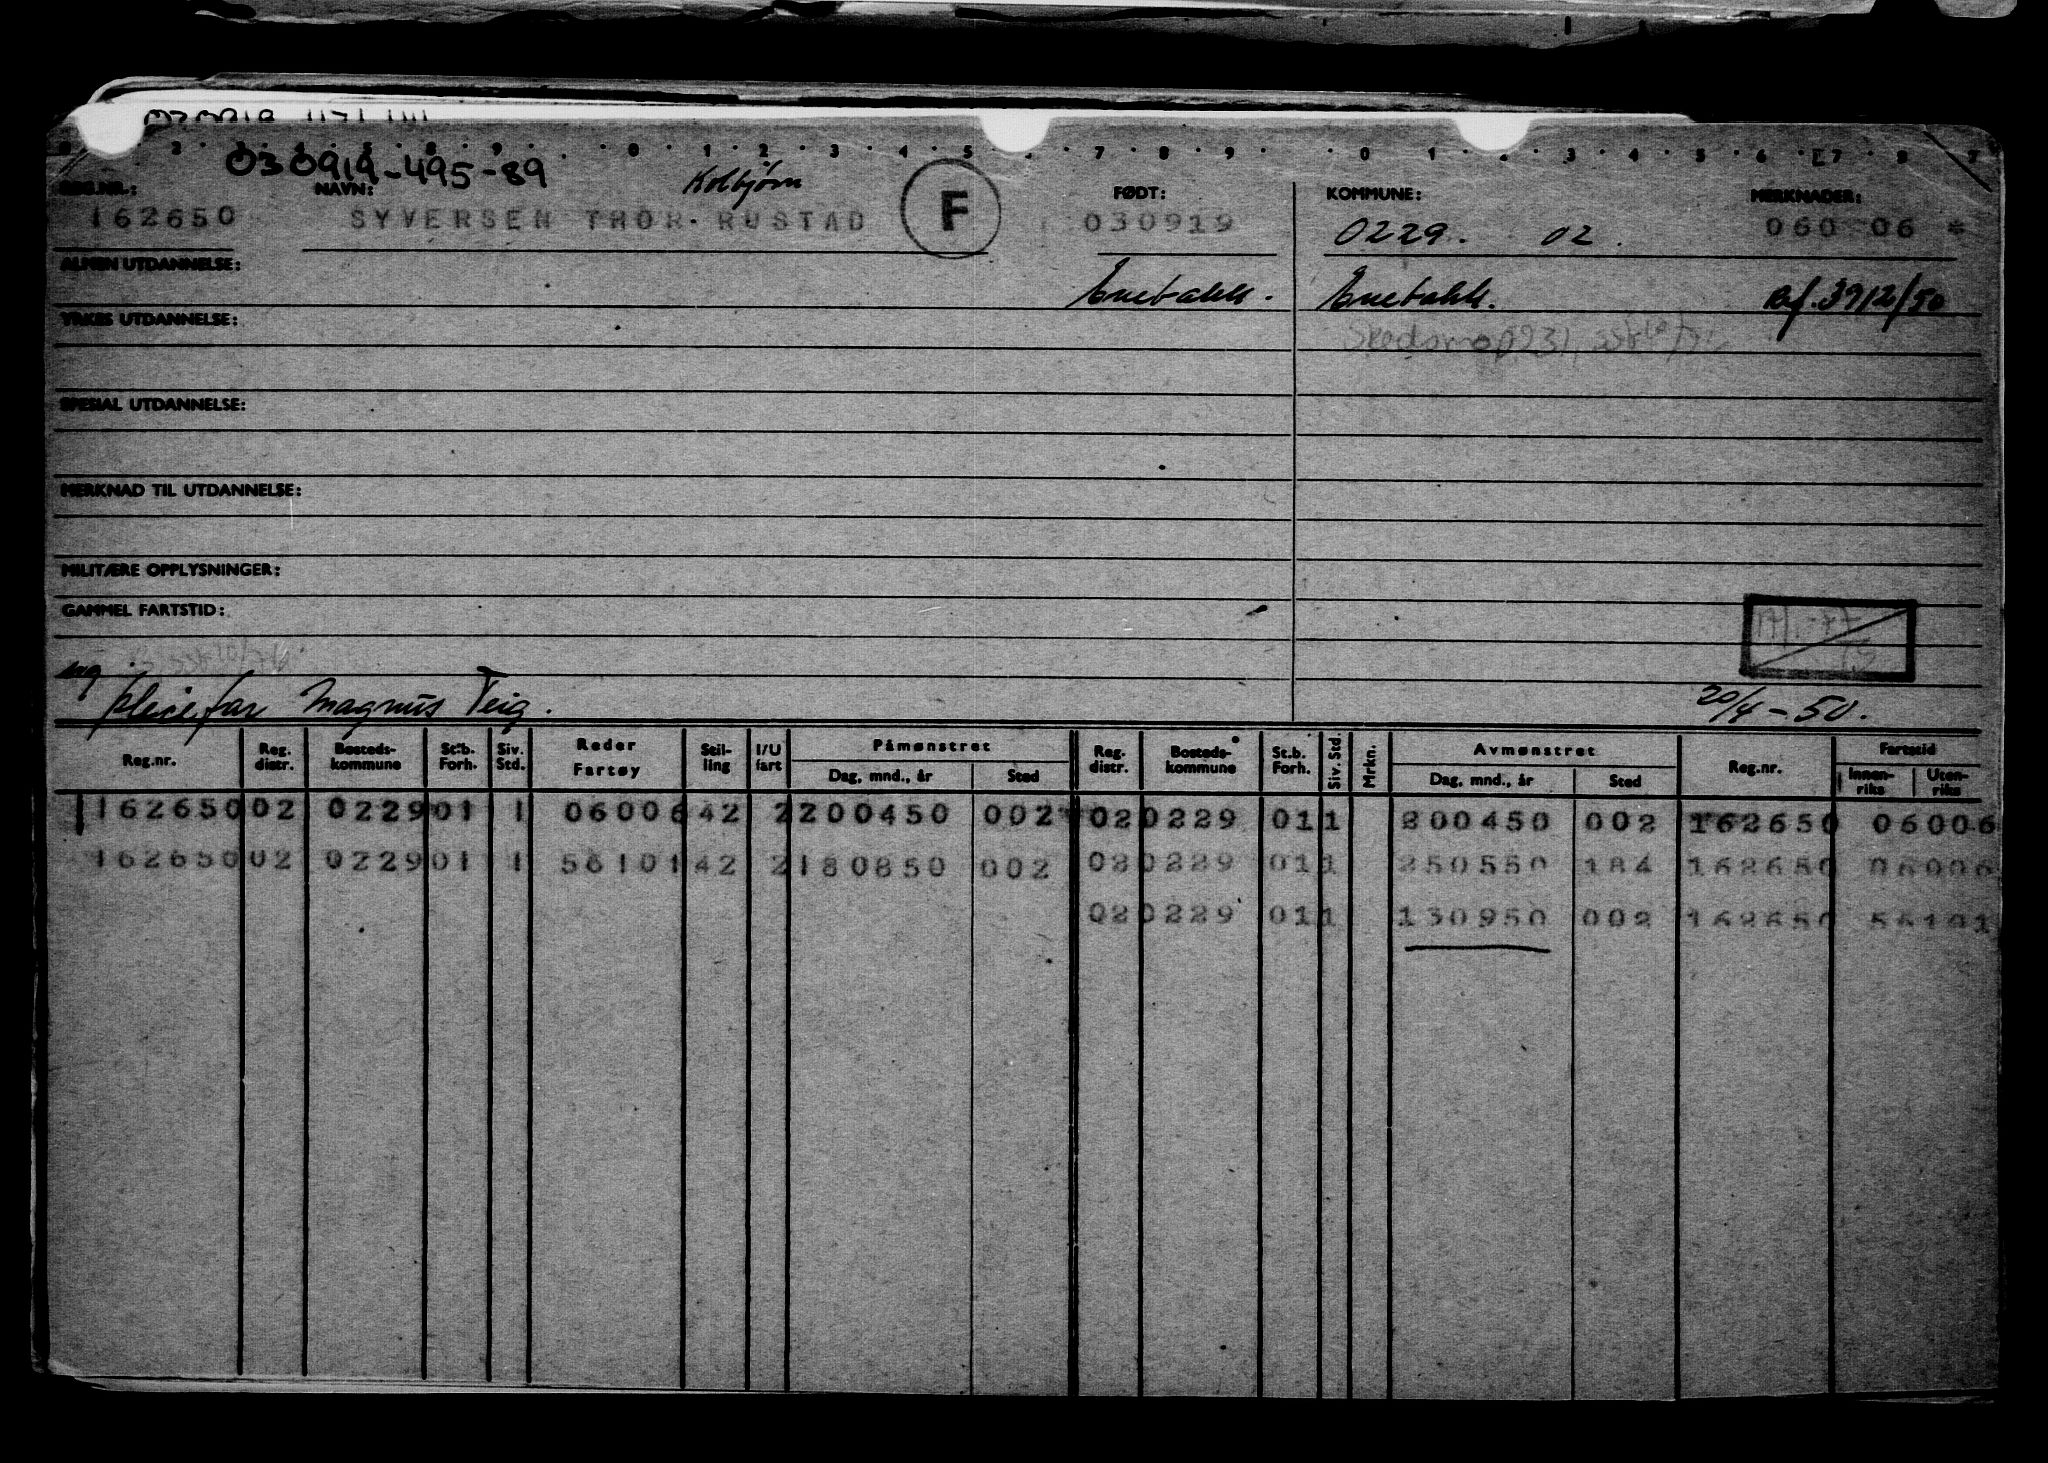 030919-495-89
Kolbjørn
REG.NR.: NAVN: FØDT: KOMMUNE: MERKNADER:
162650 SYVERSEN THOR RUSTAD F 030919 0229. 02. 060 06 *
ALMEN UTDANNELSE:
Enebakk. Enebakk. Ref. 3912/50
YRKES UTDANNELSE:
Skedsmo 0231
SPESIAL UTDANNELSE:
MERKNAD TIL UTDANNELSE:
MILITÆRE OPPLYSNINGER:
GAMMEL FARTSTID:
ug
Pleiefar Magnus Teig. 20/4-50.
Reg.nr. Reg. distr. Bosteds-kommune St.b. Forh. Siv. Std. Reder Fartøy Stil-ling I/U fart Påmønstret Dag, mnd., år Sted Reg. distr. Bosteds-kommune St.b. Forh. Siv. Std. Mrkn. Avmønstret Dag, mnd., år Sted Reg.nr. Fartstid Innen-riks Uten-riks
162650 02 0229 01 1 06006 42 2 200450 002 02 0229 01 1 200450 002 162650 06006
162650 02 0229 01 1 56101 42 2 180850 002 02 0229 01 1 250550 184 162650 06006
02 0229 01 1 130950 002 162650 56101